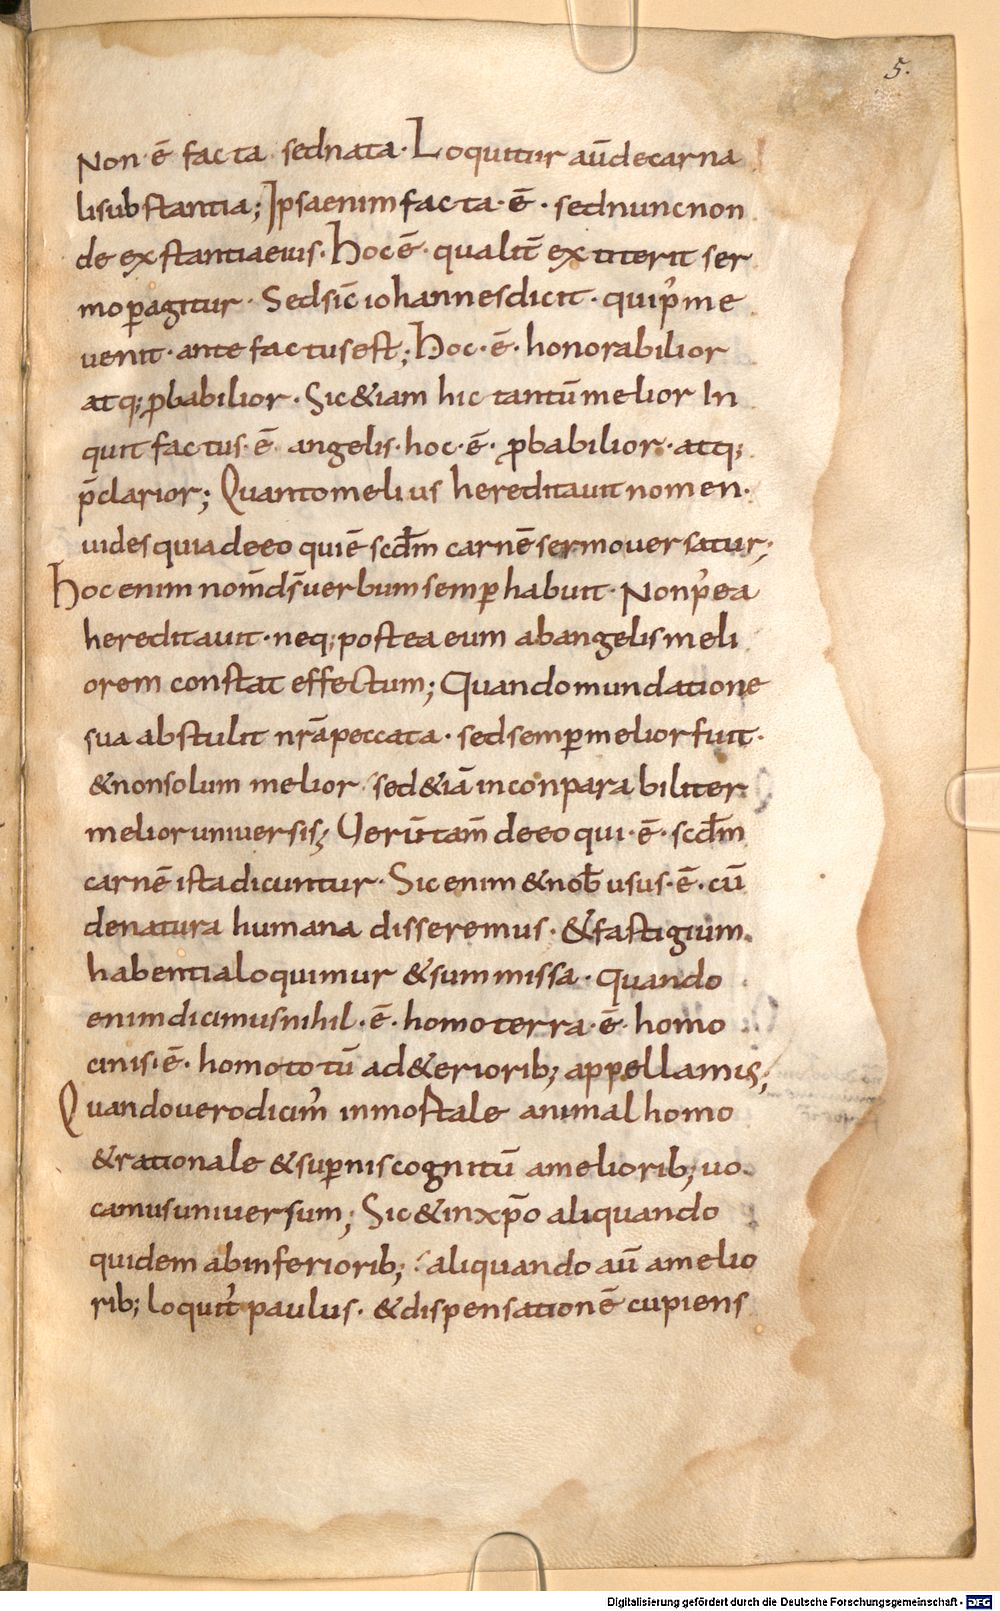 5.
Non·ē facta sed nata· Loquitur aūdecarna
lisubstantia; Ipsaenimfacta·ē· sednuncnon
de exstantiaeius· Hocē· qualit̄ extiterit ser
moꝑagitur· Sedsic̄ iohannesdicit· quip̓me
uenit· ante factusest; Hoc·ē· honorabilior
atq; ꝓbabilior· Sic&iam hic tantūmelior In
quit factus·ē angelis· hoc·ē· ꝓbabilior· atq;
p̄clarior; Quantomelius hereditauit nomen·
uidesquiadeeo quiē scd̄m carnē sermouersatur;
Hoc enim nom̄ds̄uerbumsemꝑhabuit· Nonp̓ea
hereditauit· neq; postea eum abangelismeli
orem constat effectum; Quandomundatione
sua abstulit nr̄apeccata· sedsemꝑmeliorfuit·
&nonsolum melior sed&iā inconparabiliter
melioruniuersis; Uerūtam̄ deeo qui·ē· scd̄m
carnē ista dicuntur· Sic enim &nob̄ usus·ē· cū
denatura humana disseremus· &fastigium
habentialoquimur &summissa· Quando
enimdicimusnihil·ē· homoterra·ē· homo
cinis·ē· homototū ad&eriorib; appellamus;
Quandouerodicim̓ inmortale animal homo
&rationale &suꝑniscognitū ameliorib; uo
camusuniuersum; Sic&inxp̄o aliquando
quidem abinferiorib; aliquando aū amelio
rib; loquit̓ paulus· &dispensationē cupiens
Digitalisierung gefördert durch die Deutsche Forschungsgemeinschaft - DFG